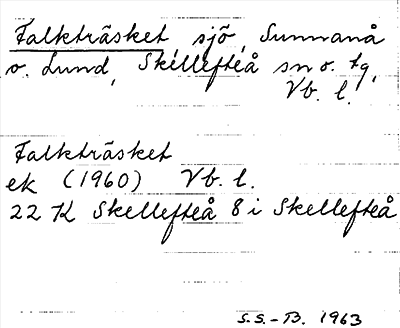 Falkträsket, sjö, Sunnanå
o. Lund, Skellefteå sn o. tg,
Vb. l.
Falkträsket
ek (1960) Vb. l.
22 K Skellefteå 8 i Skellefteå
S.S.-B. 1963